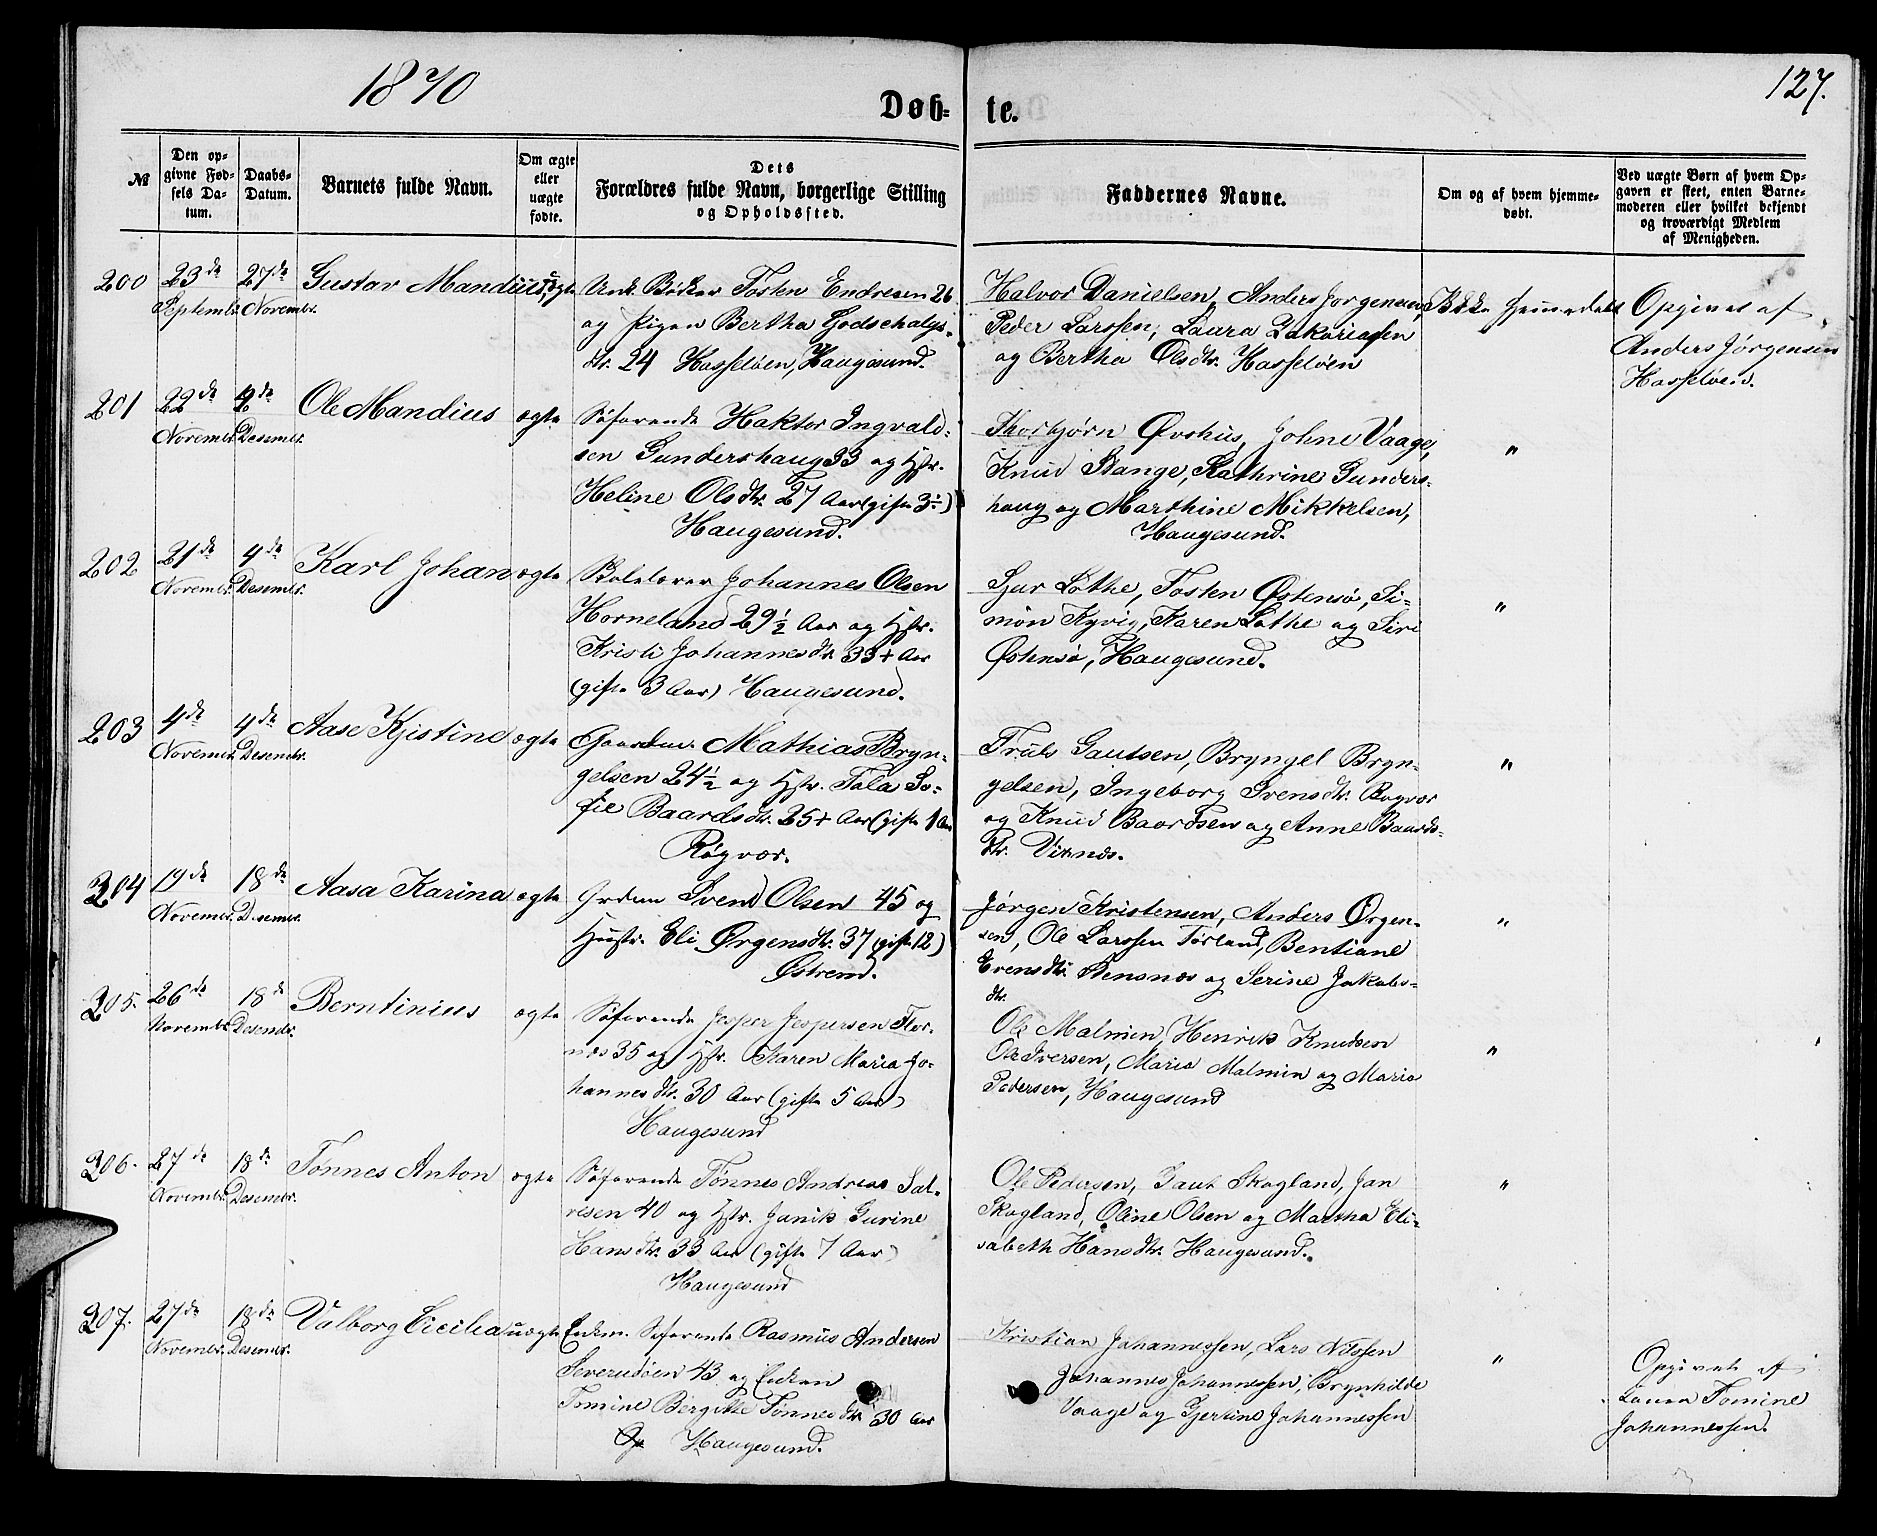 1870
127.
Døb-
te.
№
Den op-
givne Fød-
sels Da-
tum.
Daabs-
Datum.
Barnets fulde Navn.
Om ægte
eller
uægte
fødte.
Dets
Forældres fulde Navn, borgerlige Stilling
og Opholdssted.
Faddernes Navne.
Om og af hvem hjemme-
døbt.
Ved uægte Børn af hvem Op-
gaven er skeet, enten Barne-
moderen eller hvilket bekjendt
og troværdigt Medlem
af Menigheden.
200 23de Septembr. 27de Novembr. Gustav Mandius uægte
Unk. Bødker Tosten Endresen 26
og Pigen Bertha Godschalgs-
dtr. 24 Hasseløen, Haugesund.
Halvor Danielsen, Anders Jørgensen,
Peder Larssen, Laura Zakariassen
og Bertha Olsdtr. Hasseløen
Ikke hjemmedøbt
Opgivet af
Anders Jørgensen
Hasseløen.
201 22de Novembr. 4de Desembr. Ole Mandius ægte
Søfarende Haktor Ingvald-
sen Gundershaug 33 og Hstr.
Heline Olsdtr. 27 Aar (gifte 3½)
Haugesund.
Thorbjørn Øvshus, Johne Vaage,
Knud Stange, Kathrine Gunders-
haug og Marthine Mikkelsen,
Haugesund.
"
202 21de Novembr. 4de Desembr. Karl Johan ægte
Skolelærer Johannes Olsen
Horneland 29½ Aar og Hstr.
Kristi Johannesdtr. 33+ Aar
(gifte 3 Aar) Haugesund.
Sjur Løthe, Tosten Østensø, Si-
mon Kyvig, Karen Løthe og Siri
Østensø, Haugesund.
"
203 4de Novembr. 4de Desembr. Aase Kjistine ægte
Gaardm. Mathias Bryn-
gelsen 24½ og Hstr. Tala So-
fie Baardsdtr. 25+ Aar (gifte 1 Aar
Røgvær.
Truls Gautsen, Bryngel Bryn-
gelsen, Ingeborg Svensdtr. Røgvær
og Knud Baardsen og Anne Baards-
dtr. Vixnes.
"
204 19de Novembr. 18de Desembr. Aasa Karina ægte
Grdm Svend Olsen 45 og
Hustr. Eli Ørgensdtr. 37 (gifte 12)
Østrem.
Jørgen Kristensen, Anders Ørgen-
sen, Ole Larssen Førland, Bentiane
Evensdtr. Stensnæs og Serine Jakobs-
dtr.
"
205. 26de Novembr. 18de Desembr. Berntinius ægte
Søfarende Jesper Jespersen Flor-
næs 35 og Hstr. Karen Maria Jo-
hannesdtr. 30 Aar (gifte 5 Aar)
Haugesund
Ole Malmin, Henrik Knudsen
Ole Iversen, Maria Malmin og Maria
Pedersen, Haugesund
"
206. 27de Novembr. 18de Desembr. Tønnes Anton ægte
Søfarende Tønnes Andreas Sal-
visen 40 og Hstr. Janik Gurine
Hansdtr. 33 Aar (gifte 7 Aar)
Haugesund
Ole Pedersen, Gaut Skogland, Jan
Skogland, Oline Olsen og Martha Eli-
sabeth Hansdtr. Haugesund.
"
207. 27de Novembr. 18de Desembr. Valborg Cicilia uægte
Enkm. Søfarende Rasmus Andersen
43 og Enken
Tomine Bergitte Tønnesdtr. 30 Aar
Haugesund.
Kristian Johannessen, Lars Nilssen
Johannes Johannessen, Brynhilde
Vaage og Gjertine Johannessen
"
Opgivet af
Laura Tomine
Johannessen.